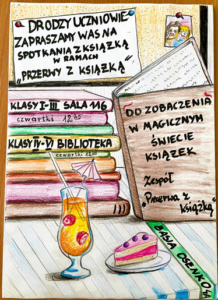 DRODZY UCZNIOWIE
ZAPRASZAMY WAS NA
SPOTKANIA Z KSIĄŻKĄ
W RAMACH
"PRZERWY Z KSIĄŻKĄ"
KLASY I-III SALA 116
czwartki
KLASY IV-VI BIBLIOTEKA
czwartki
DO ZOBACZENIA
W MAGICZNYM
ŚWIECIE
KSIĄŻEK
Zespół
"Przerwa z
książką"